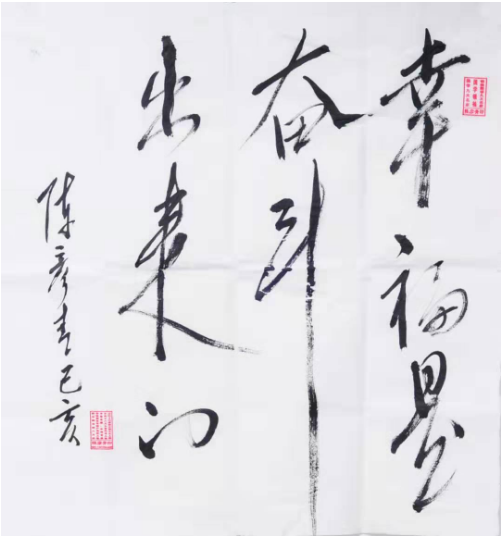 幸福是
奋斗
出来的
陈彦青己亥